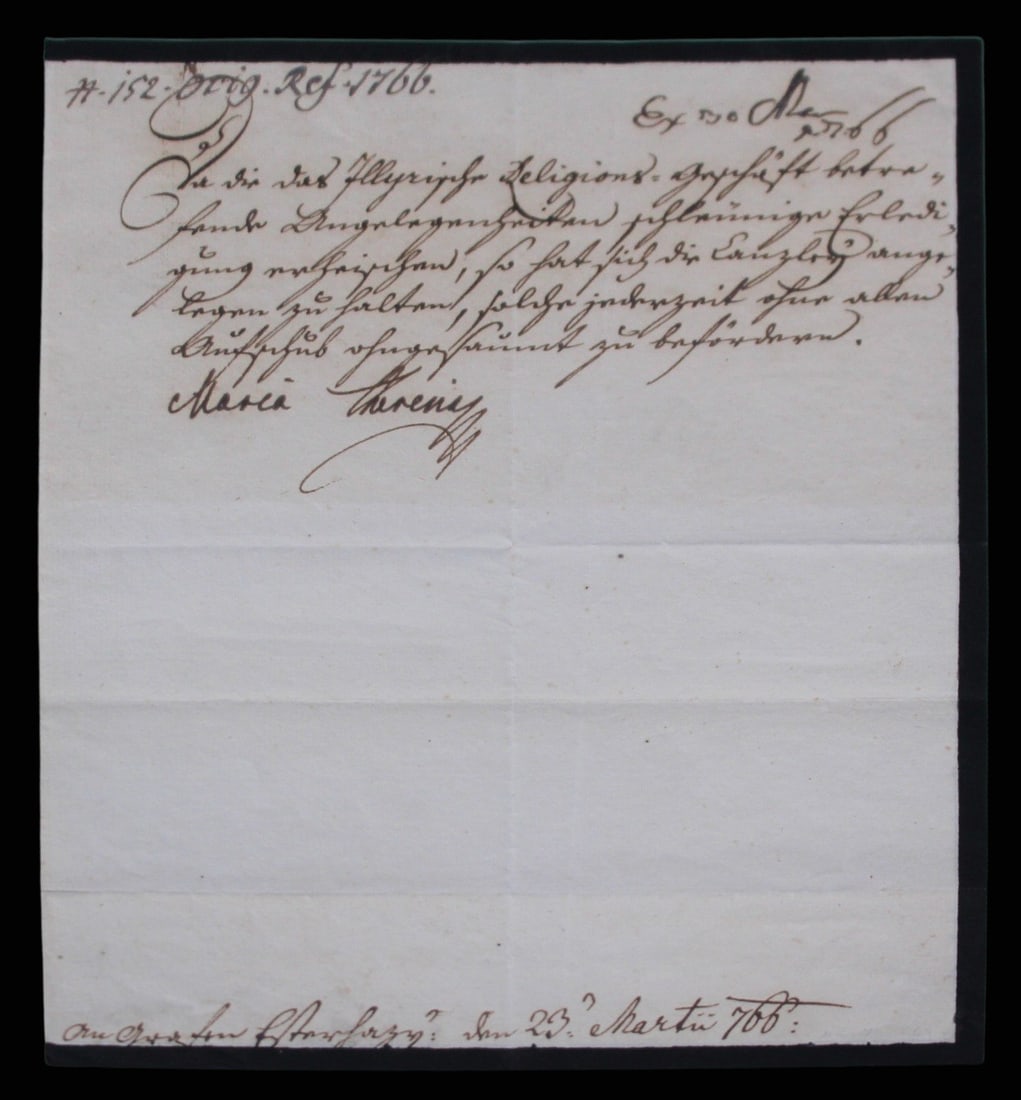 #. 152. Orig. Ref. 1766.
Ex
Da die das Illyrische Religions-Geschäft betre-
fende Angelegenheiten schleünige Erledi-
gung erheischen, so hat sich die Canzley ange-
legen zu halten, solche jederzeit ohne allen
Aufschub ohngesäumt zu befördern.
Maria Theresia
An Grafen Esterhazy: den 23: Martii 766: